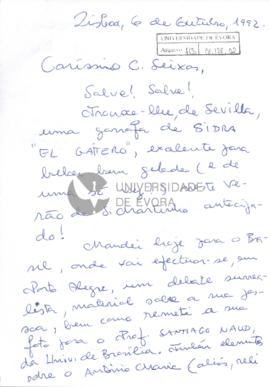 Lisboa, 6 de Outubro, 1992.
UNIVERSIDADE DE ÉVORA
Caríssimo C. Seixas,
Salve! Salve!
Trouxe-lhe, de Sevilla,
uma garrafa de SIDRA
"EL GAITERO", excelente para
beber bem gelada (e de
uma só vez) neste Ve-
rão de S. Martinho anteci-
UNIVERSIDADE
DE ÉVORA
pado!
Mandei hoje para o Bra-
sil, onde vai efectuar-se, em
Porto Alegre, um debate surrea-
lista, material sobre a sua pes-
soa, bem como remeti a sua
foto para o Prof. SANTIAGO NAUD,
da Univ. de Brasília. Também elementos
sobre o António Maria (aliás, reli